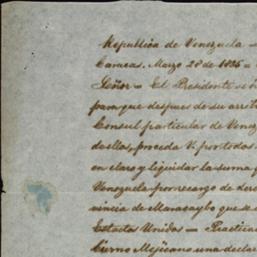 Republica de Venezuela —
Caracas. Marzo 28 de 1836 =
Señor — El Presidente se h
para que despues de su arri
Consul particular de Venez
de ellas, proceda V. por todos
en claro y liquidar la suma q
Venezuela por recargo de dere
vincia de Maracaybo que se
Estados Unidos — Practica
bierno Mejicano una declar